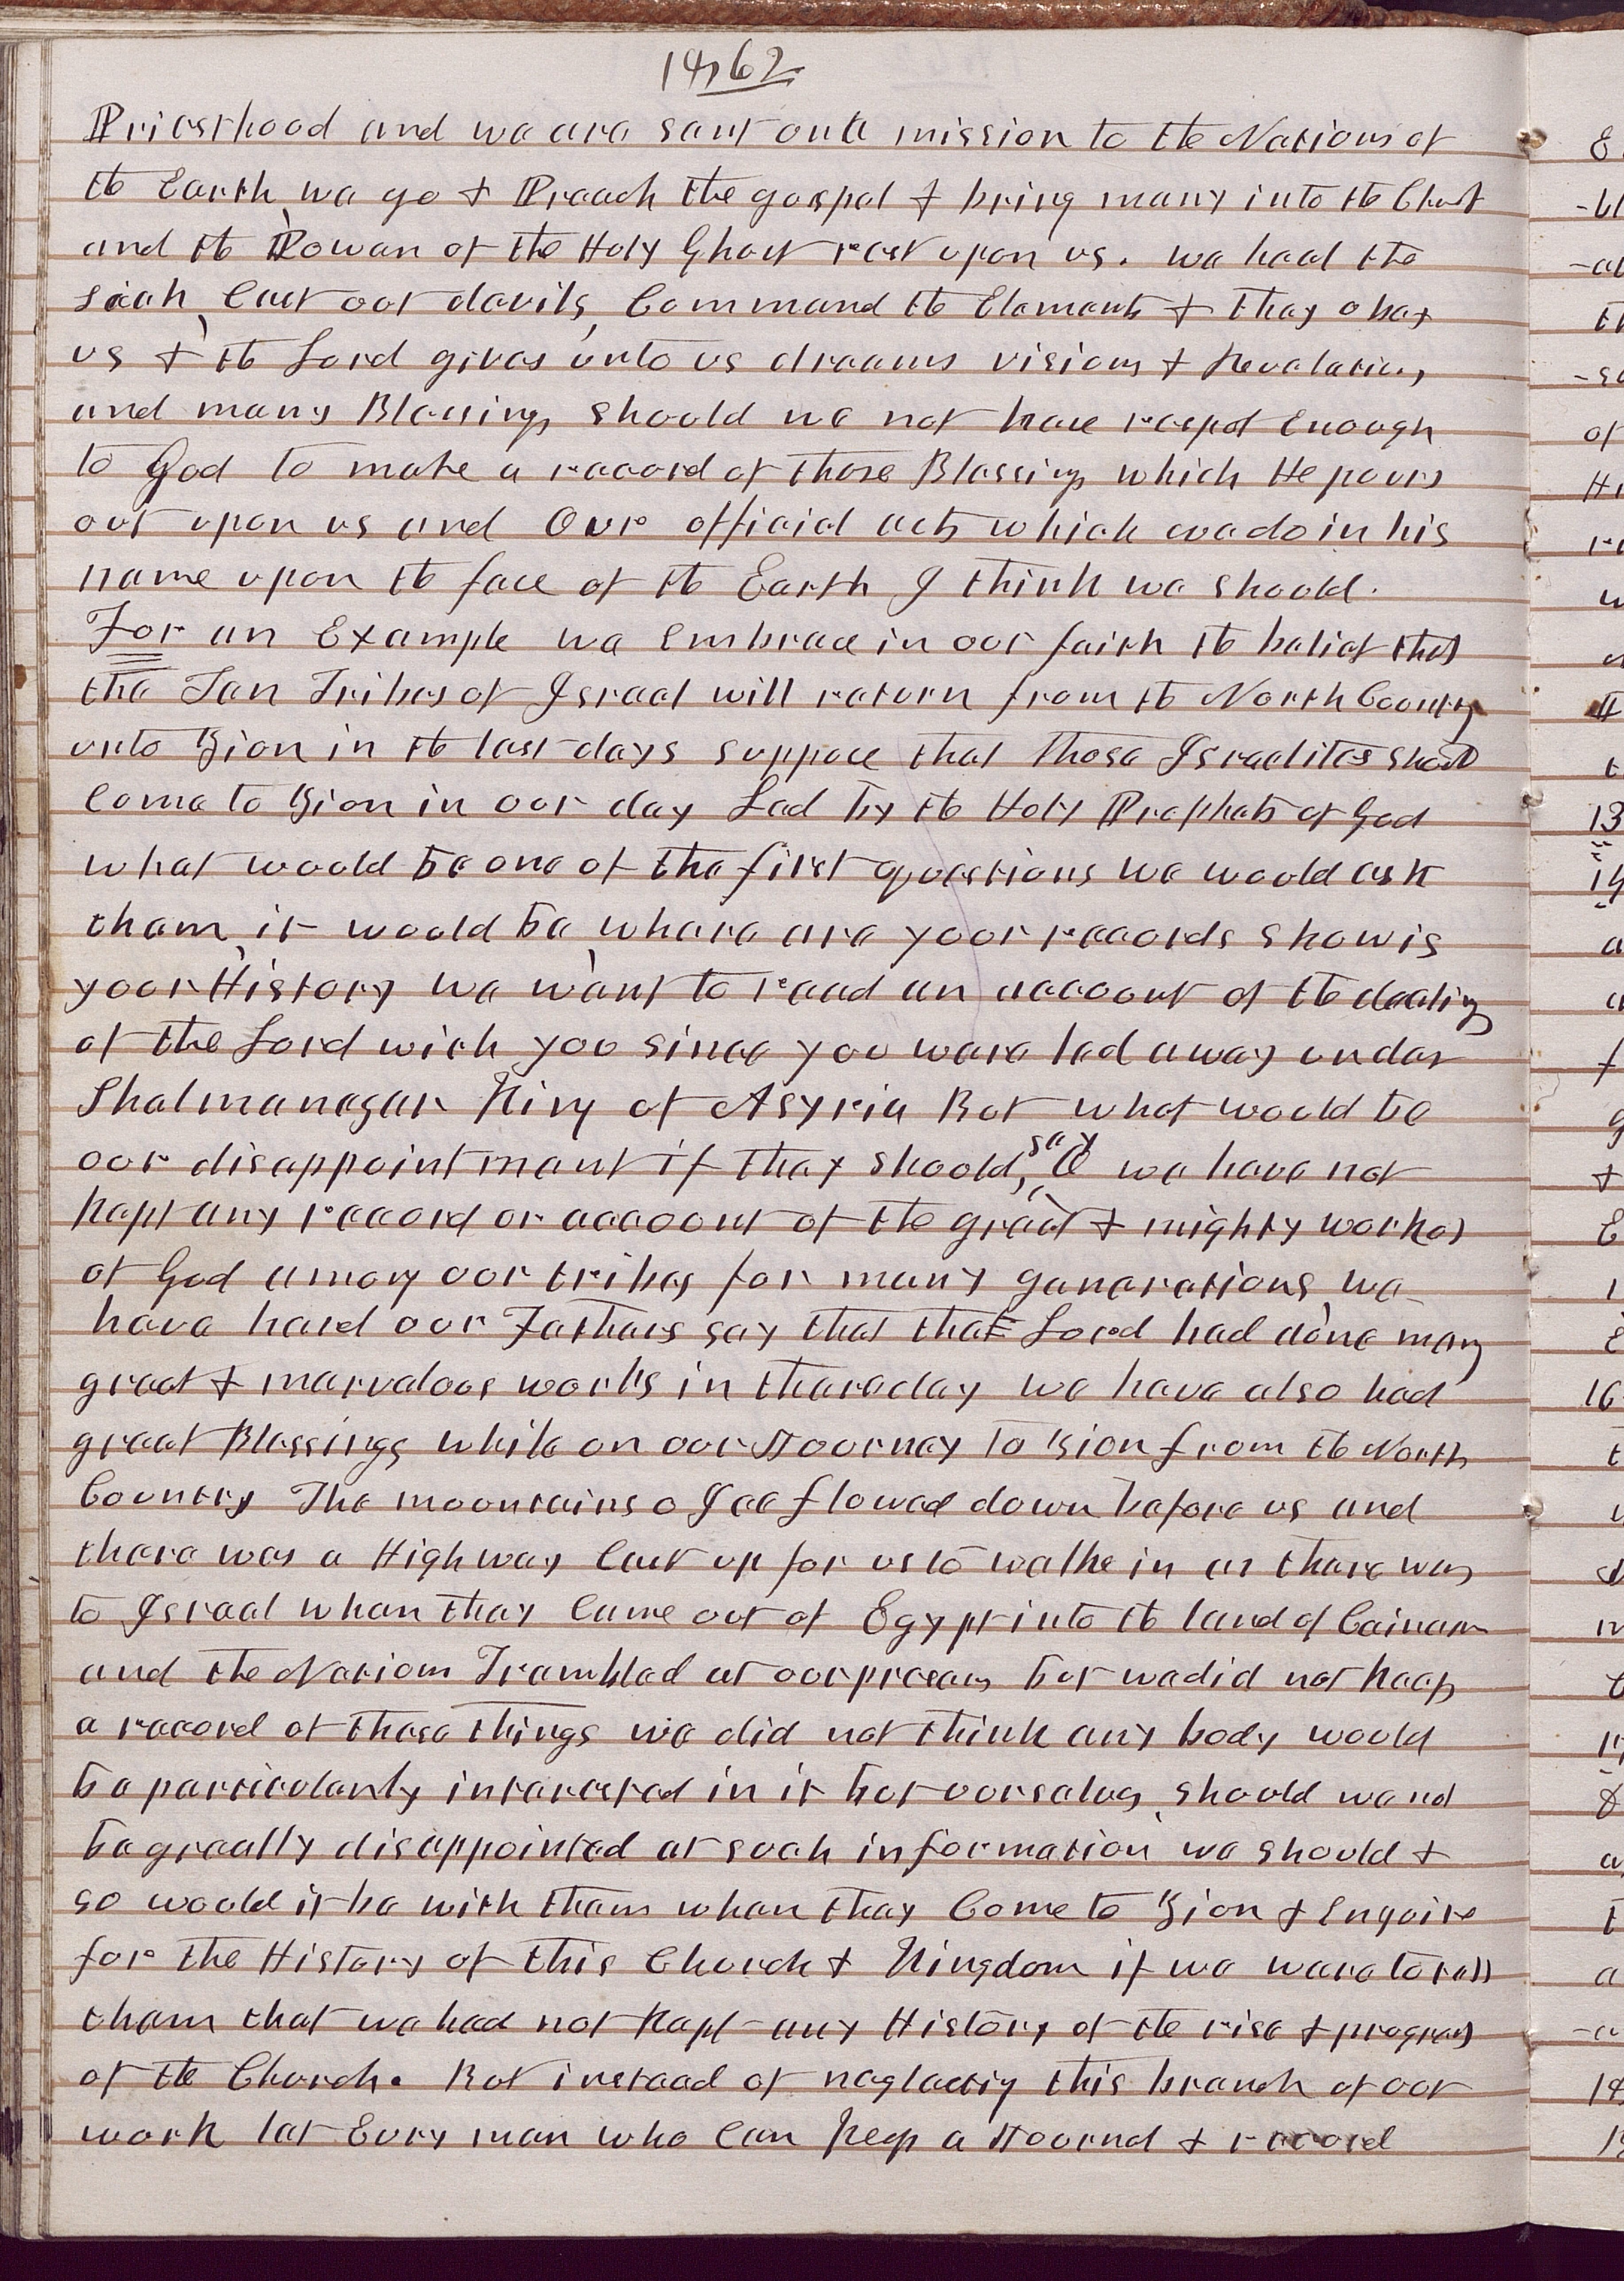 1862
Priesthood and we are sent on a mission to the Nations of
the Earth, we go & Preach the gospel & bring many into the Church
and the Power of the Holy Ghost rest upon us. we heal the
sick, Cast out devils, Command the Elements & they obey
us & the Lord gives unto us dreams visions & Revelations
and many Blessings should we not have respect enough
to God to make a record of those Blessings which He pours
out upon us and Our official acts which we do in his
name upon the face of the Earth I think we should.
For an Example we embrace in our faith the belief that
the Ten Tribes of Israel will return from the North Country
unto Zion in the last days suppose that those Israelites should
Come to Zion in our day Led by the Holy Prophets of God
what would be one of the first questions we would ask
them, it would be, where are your records show is
your History we want to read an account of the dealings
of the Lord with you since you were led away under
Shalmanezar King of Asyria But what would be
our disappointment if they should, say O we have not
kept any record or account of the great & mighty works
of God among our tribes for many generations, we
have hard our Fathers say that that Lord had done many
great & marvelous works in there day we have also had
great Blessings while on our Journey To Zion from the North
Country The mountains o Ice flowed down before us and
there was a Highway Cast up for us to walke in as there was
to Israel when they Came out of Egypt into the land of Cainan
and the Nations Trembled at our presens but we did not keep
a record of these things we did not think any body would
be particularly interested in it but ourselves, should we not
be greatly disappointed at such information we should &
so would it be with them when they Come to Zion & Enquire
for the History of this Church & Kingdom if we were to tell
them that we had not kept any History of the rise & progress
of the Church. But instead of neglecting this branch of our
work let Evry man who Can keep a Journal & record